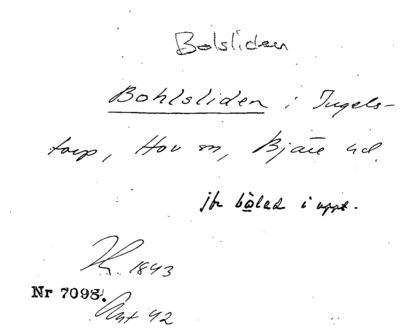 Bolsliden
Bohlsliden i Ingels-
torp, Hov sn, Bjäre hd.
jfr bålad i uppt.
1843
Nr 7098.
Ant 42